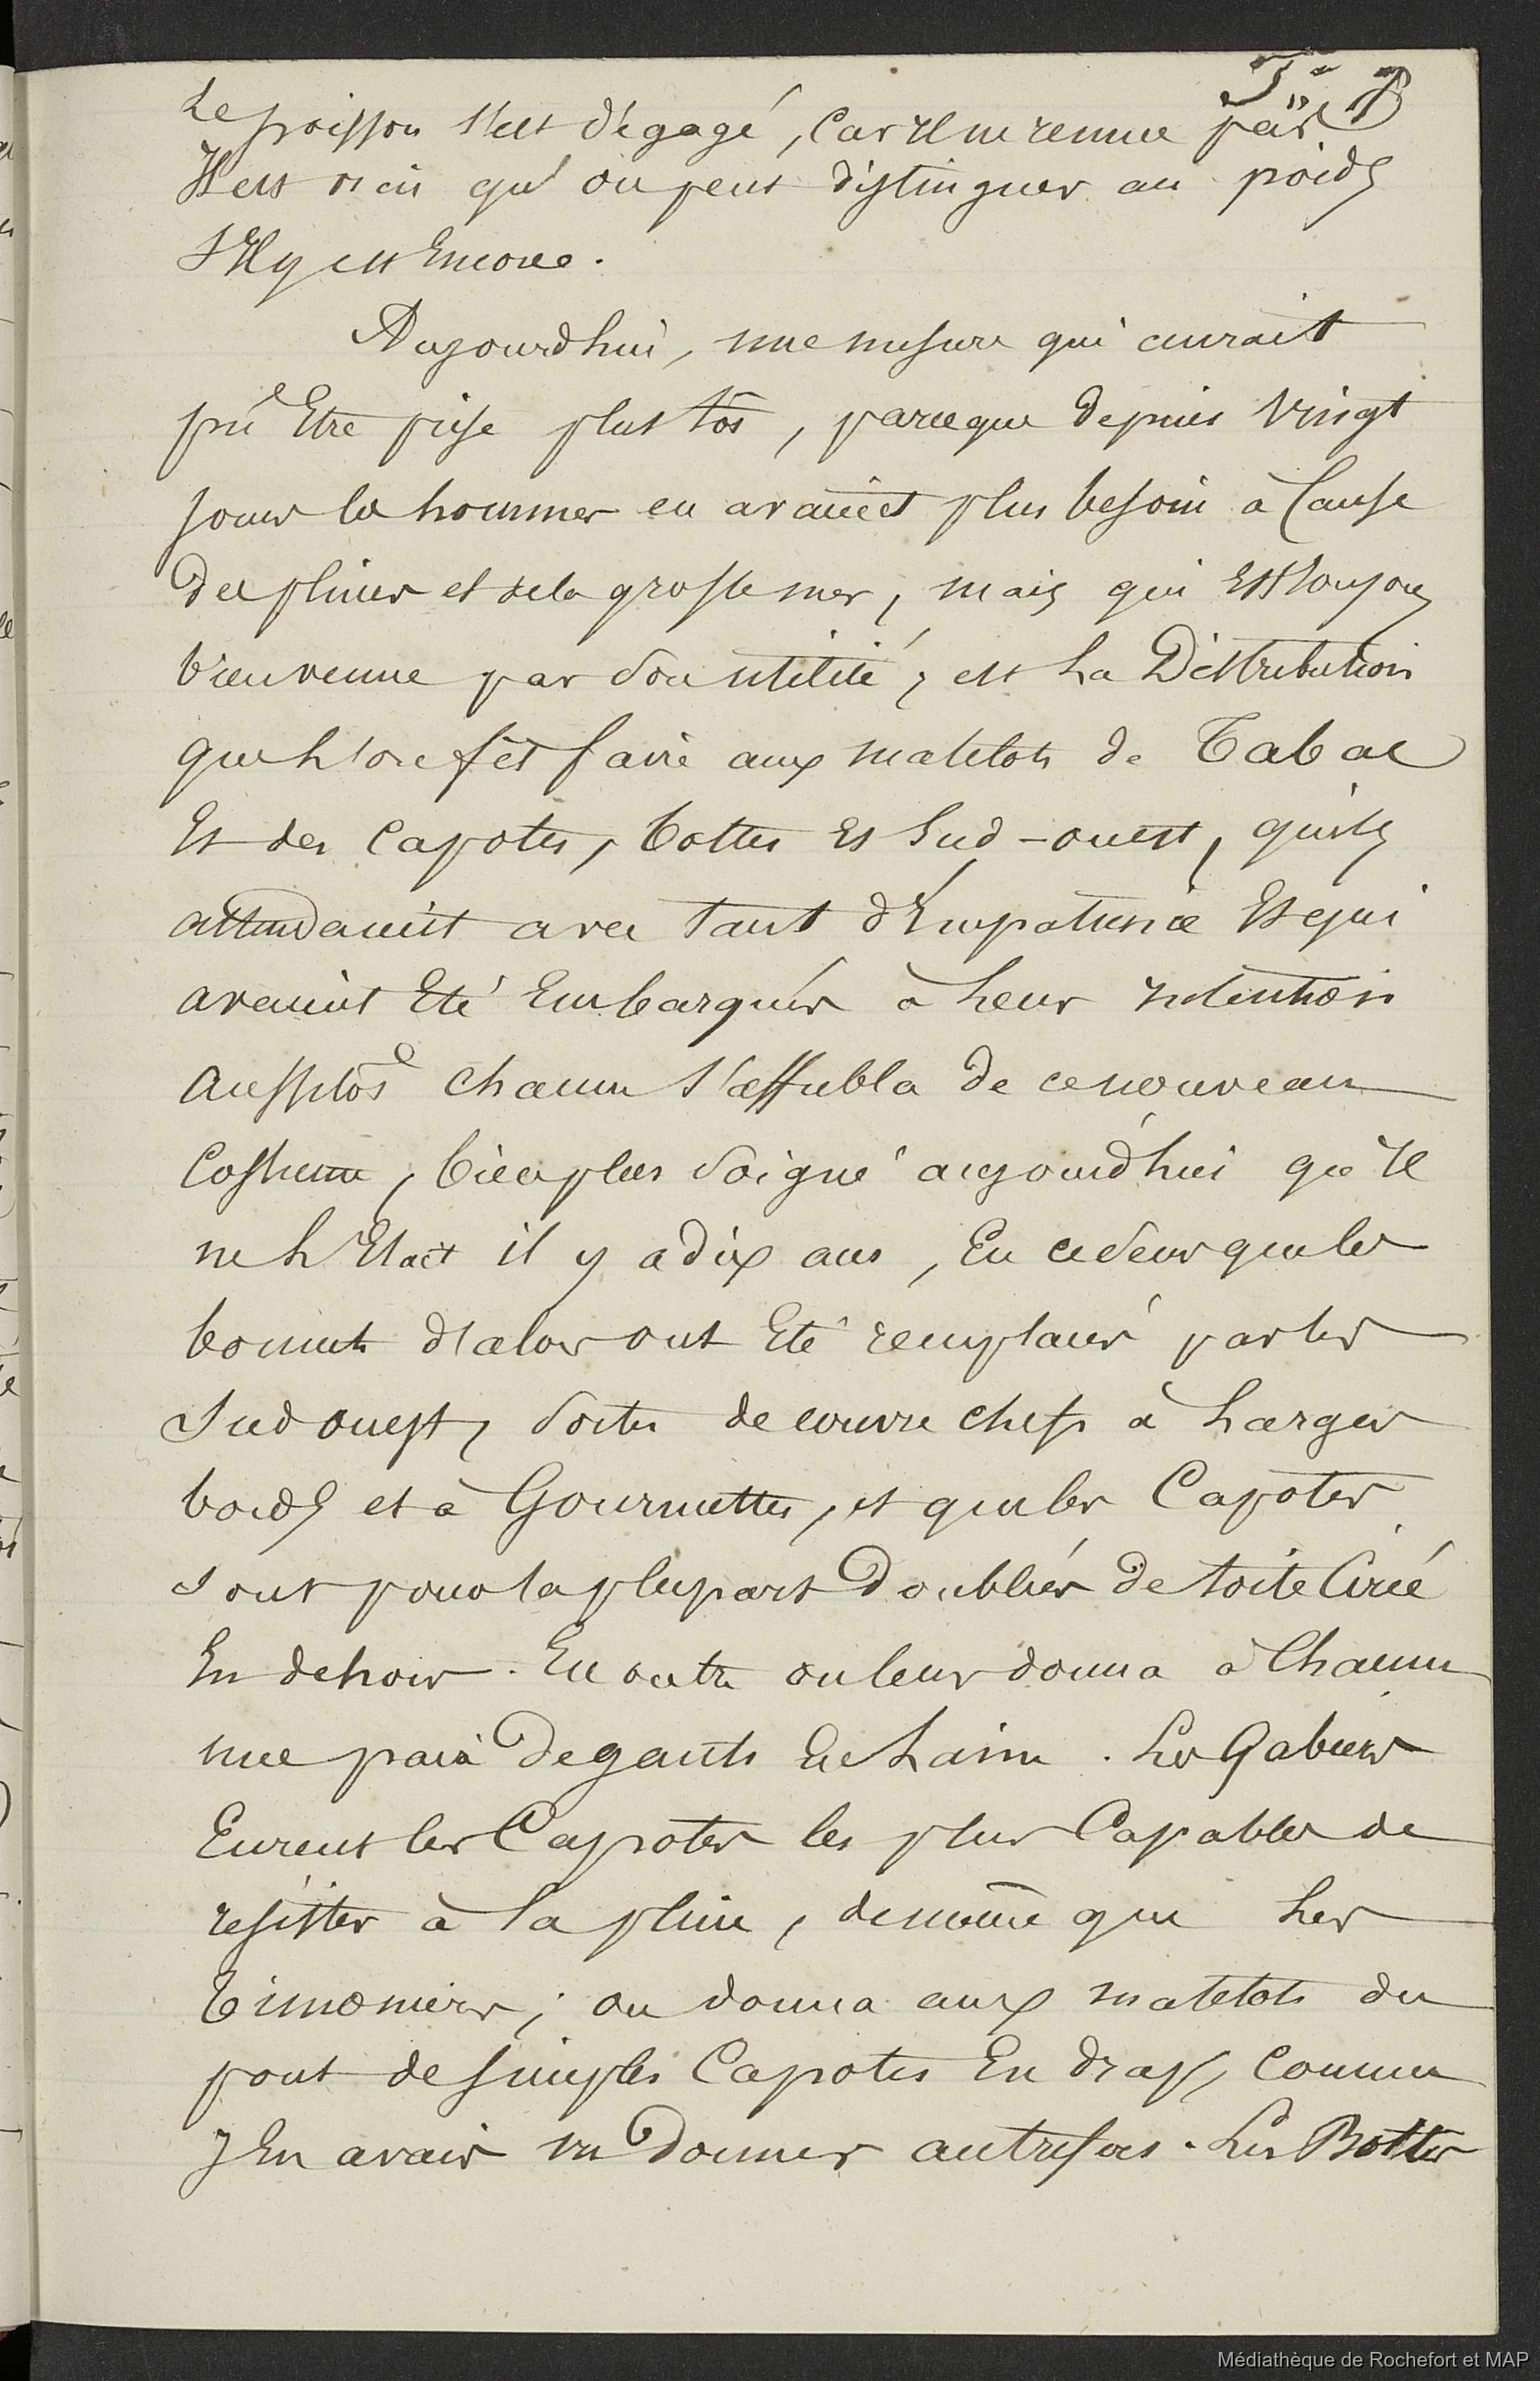 Le poisson s'est dégagé, car Il ne remue pas
Il est vrai qu'on peut distinguer au poids
S'Il y est Encore.
Aujourd'hui, une mesure qui aurait
pû Etre prise plus tôt, parceque depuis Vingt
jours les hommes en avaient plus besoin à Cause
des pluies et de la grosse mer, mais qui Est toujours
bien venue par Son utilité, est La Distribution
que L'on fit faire aux matelots de Tabac
Et des Capotes, bottes Et Sud-ouest, qu'ils
attendaient avec tant d'Impatience Et qui
avaient Eté Embarqués à Leur intention
Aussitôt chacun s'affubla de ce nouveau
Costume, bien plus Soigné aujourd'hui qu'Il
ne L'Etait il y a dix ans, En ce Sens que les
bonnets d'alors ont Eté remplacés par les
Sud ouest, Sortes de couvre chefs à Larges
bords et à Gourmettes, et que les Capotes
Sont pour la plupart Doublées De toile Cirée
En dehors. En outre on leur donna à Chacun
une paire De gants En Laine. Les Gabiers
Eurent les Capotes les plus Capables de
résister à la pluie, de même que Les
Timoniers; on donna aux matelots du
pont de simples Capotes En drap, comme
J'En avais vu Donner autrefois. Les Bottes
Médiathèque de Rochefort et MAP